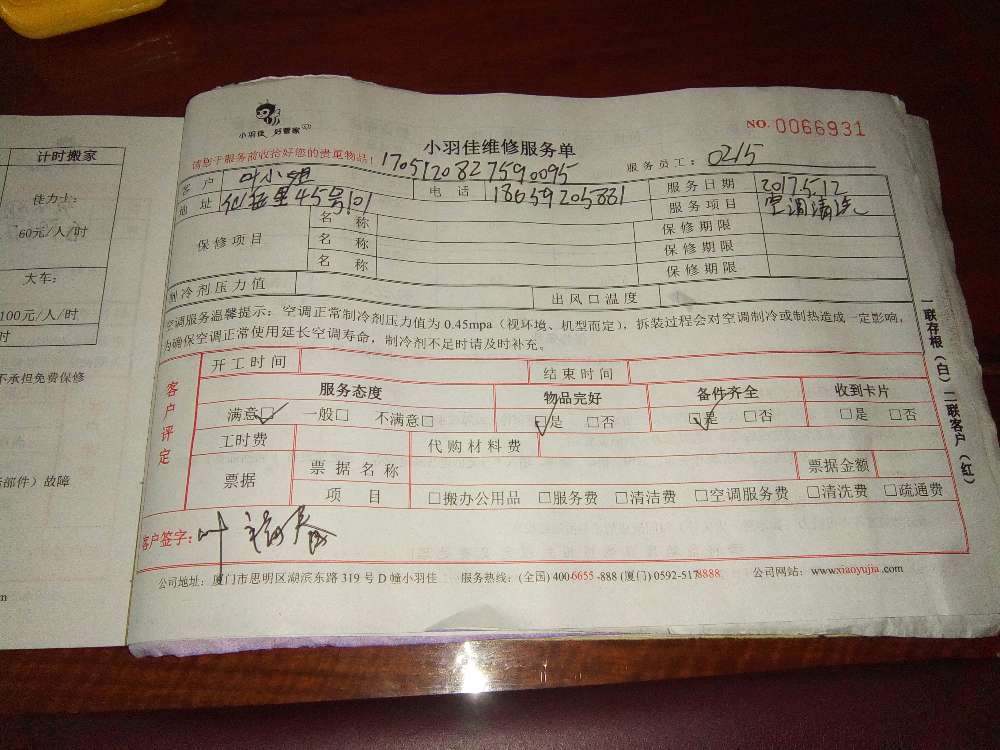 计时搬家
佳力士:
60元/人/时
大车:
100元/人/时
时
不承担免费保修
部件）故障
m
小羽佳 好管家
NO. 0066931
小羽佳维修服务单
请您于服务前收拾好您的贵重物品!
1705120827590095
服务员工: 0215
客户 叶小姐 电话 18659205881 服务日期 2017.5.12
地址 45号101 服务项目 空调清洗
保修项目 名称 保修期限
名称 保修期限
名称 保修期限
制冷剂压力值 出风口温度
空调服务温馨提示: 空调正常制冷剂压力值为 0.45mpa（视环境、机型而定），拆装过程会对空调制冷或制热造成一定影响，
为确保空调正常使用延长空调寿命，制冷剂不足时请及时补充。
客户评定 开工时间 结束时间
服务态度 物品完好 备件齐全 收到卡片
满意☑ 一般□ 不满意□ ☑是 □否 ☑是 □否 □是 □否
工时费 代购材料费
票据 票据名称 票据金额
项目 □搬办公用品 □服务费 □清洁费 □空调服务费 □清洗费 □疏通费
客户签字: 叶
公司地址: 厦门市思明区湖滨东路 319 号 D 幢小羽佳 服务热线: (全国) 400-6655-888 (厦门) 0592-5178888 公司网站: www.xiaoyujia.com
一联存根（白）二联客户（红）